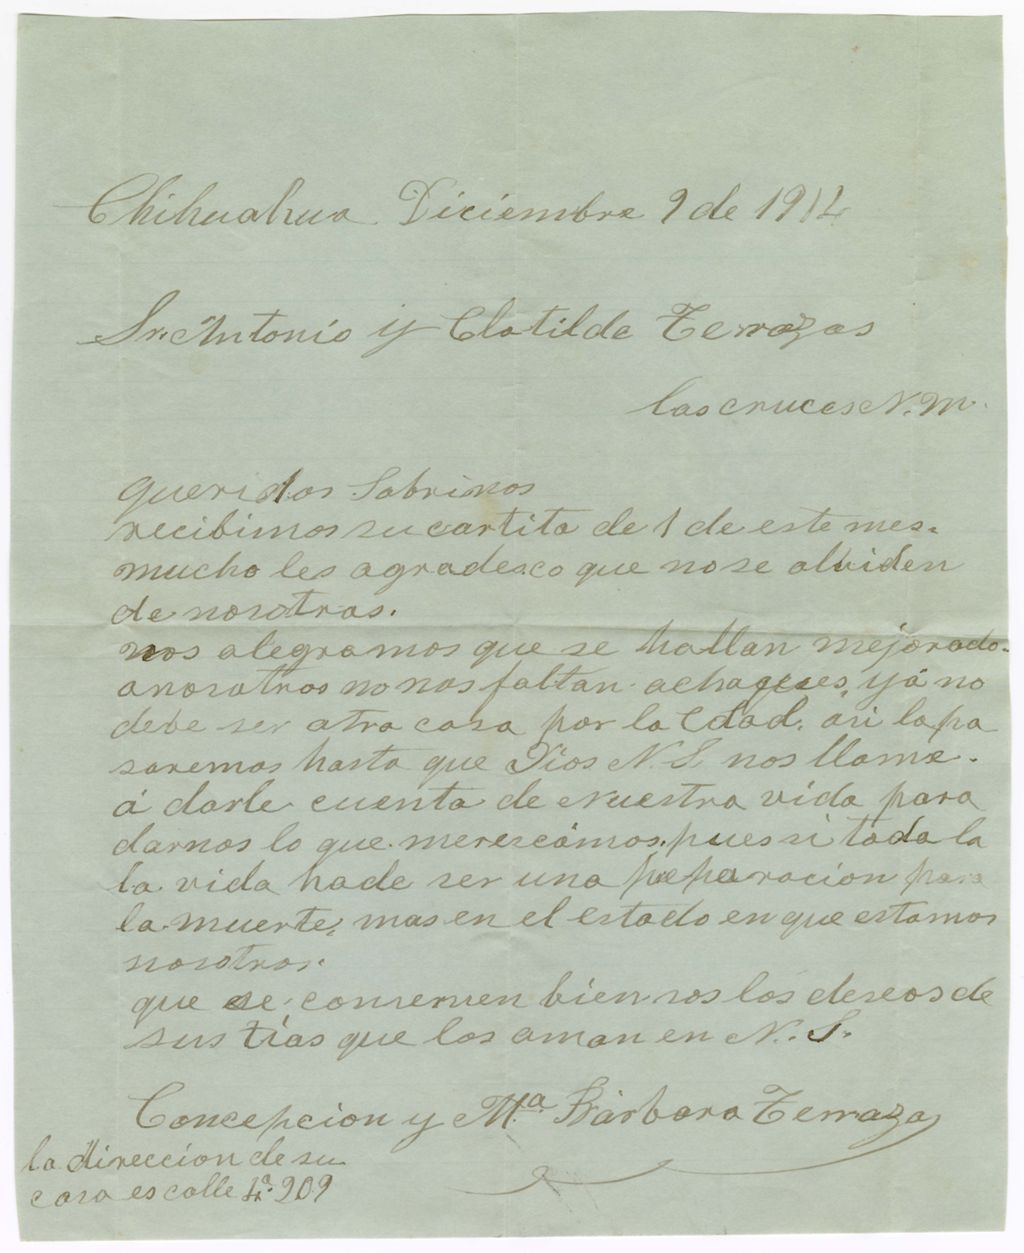 Chihuahua Diciembre 9 de 1912
Sr. Antonio y Clotilde Terrazas
las cruces N. M.
queridos Sobrinos
recibimos su cartita de 1 de este mes.
mucho les agradesco que no se olviden
de nosotras.
nos alegramos que se hallan mejorado.
anosotros no nos faltan achaques, yá no
debe ser otra cosa por la Edad. asi la pa
saremos hasta que Dios N. S. nos llame.
á darle cuenta de Nuestra vida para
darnos lo que merescámos. pues si toda la
la vida hade ser una preparacion para
la muerte, mas en el estado en que estamos
nosotros.
que se conserven bien son los deseos de
sus tías que los aman en N. S.
Concepcion y Ma. Bárbara Terrazas
la direccion de su
casa es calle 4a. 209